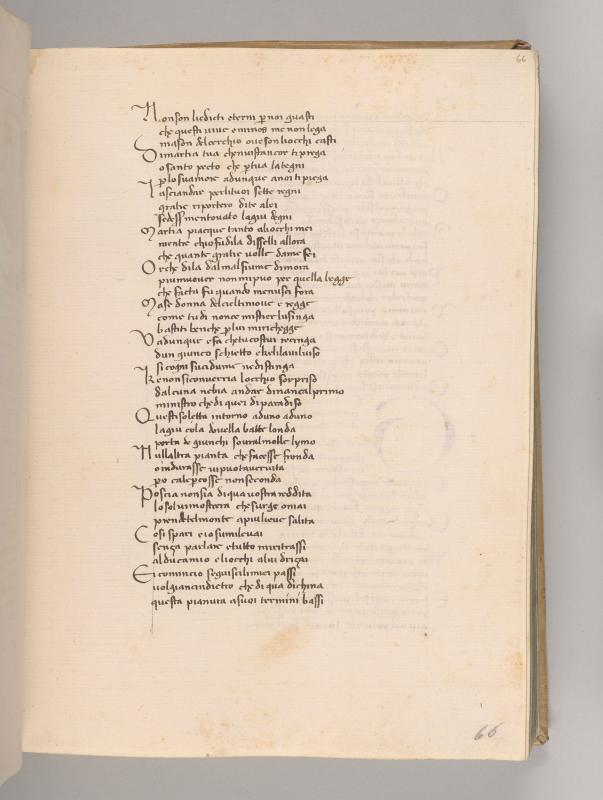 66
Non son li edicti eterni p noi guasti
che questi vive e minos me non lega
ma son del cerchio ove son liocchi casti
Di martia tua chenvistancor ti priega
o santo pecto che p tua la tegni
p lo suamore adunque anoi ti piega
Lasciandar perli tuoi sette regni
gratie riportero di te a lei
se dess mentovato lagiu degni
Martia piacque tanto aliocchi mei
mentre chio fu dila diss elli allora
che quante gratie volle da me fei
Or che dila dal mal fiume dimora
piu muover non mi puo per quella legge
che facta fu quando men usci fora
Ma se donna del ciel ti move e regge
come tu di non ce mistier lusinga
basti ti ben che p lui mi richegge
Va dunque e fa che tu costui recinga
dun giunco schietto e che li lavi luiso
si cogni sucidume ne distinga
Che non si converria locchio sorpriso
dalcuna nebia andar dinanci al primo
ministro che di quei di paradiso
Questisoletta intorno ad uno ad uno
lagiu cola dovella batte londa
porta de giunchi sovral molle lymo
Null altra pianta che facesse fronda
o indurasse vi puote aver vita
po cale pcosse non seconda
Poscia non sia di qua vostra reddita
lo sol vi mostera che surge omai
prendetel monte a piu lieve salita
Cosi spari e io su mi levai
senza parlare e tutto mi ritrassi
al duca mio e liocchi a lui drizai
Ei comincio seguisci li miei passi
volgianci indietro che di qua dichina
questa pianura a suoi termini bassi
66